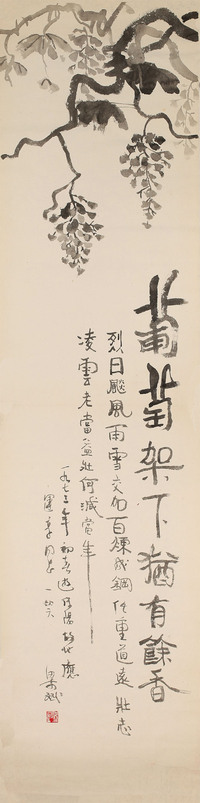 葡萄架下猶有餘香
烈日飈風雨雪交加百煉成鋼任重道遠壯志
凌雲老當益壯何減當年
一九七三年初春遊
應
同志一笑